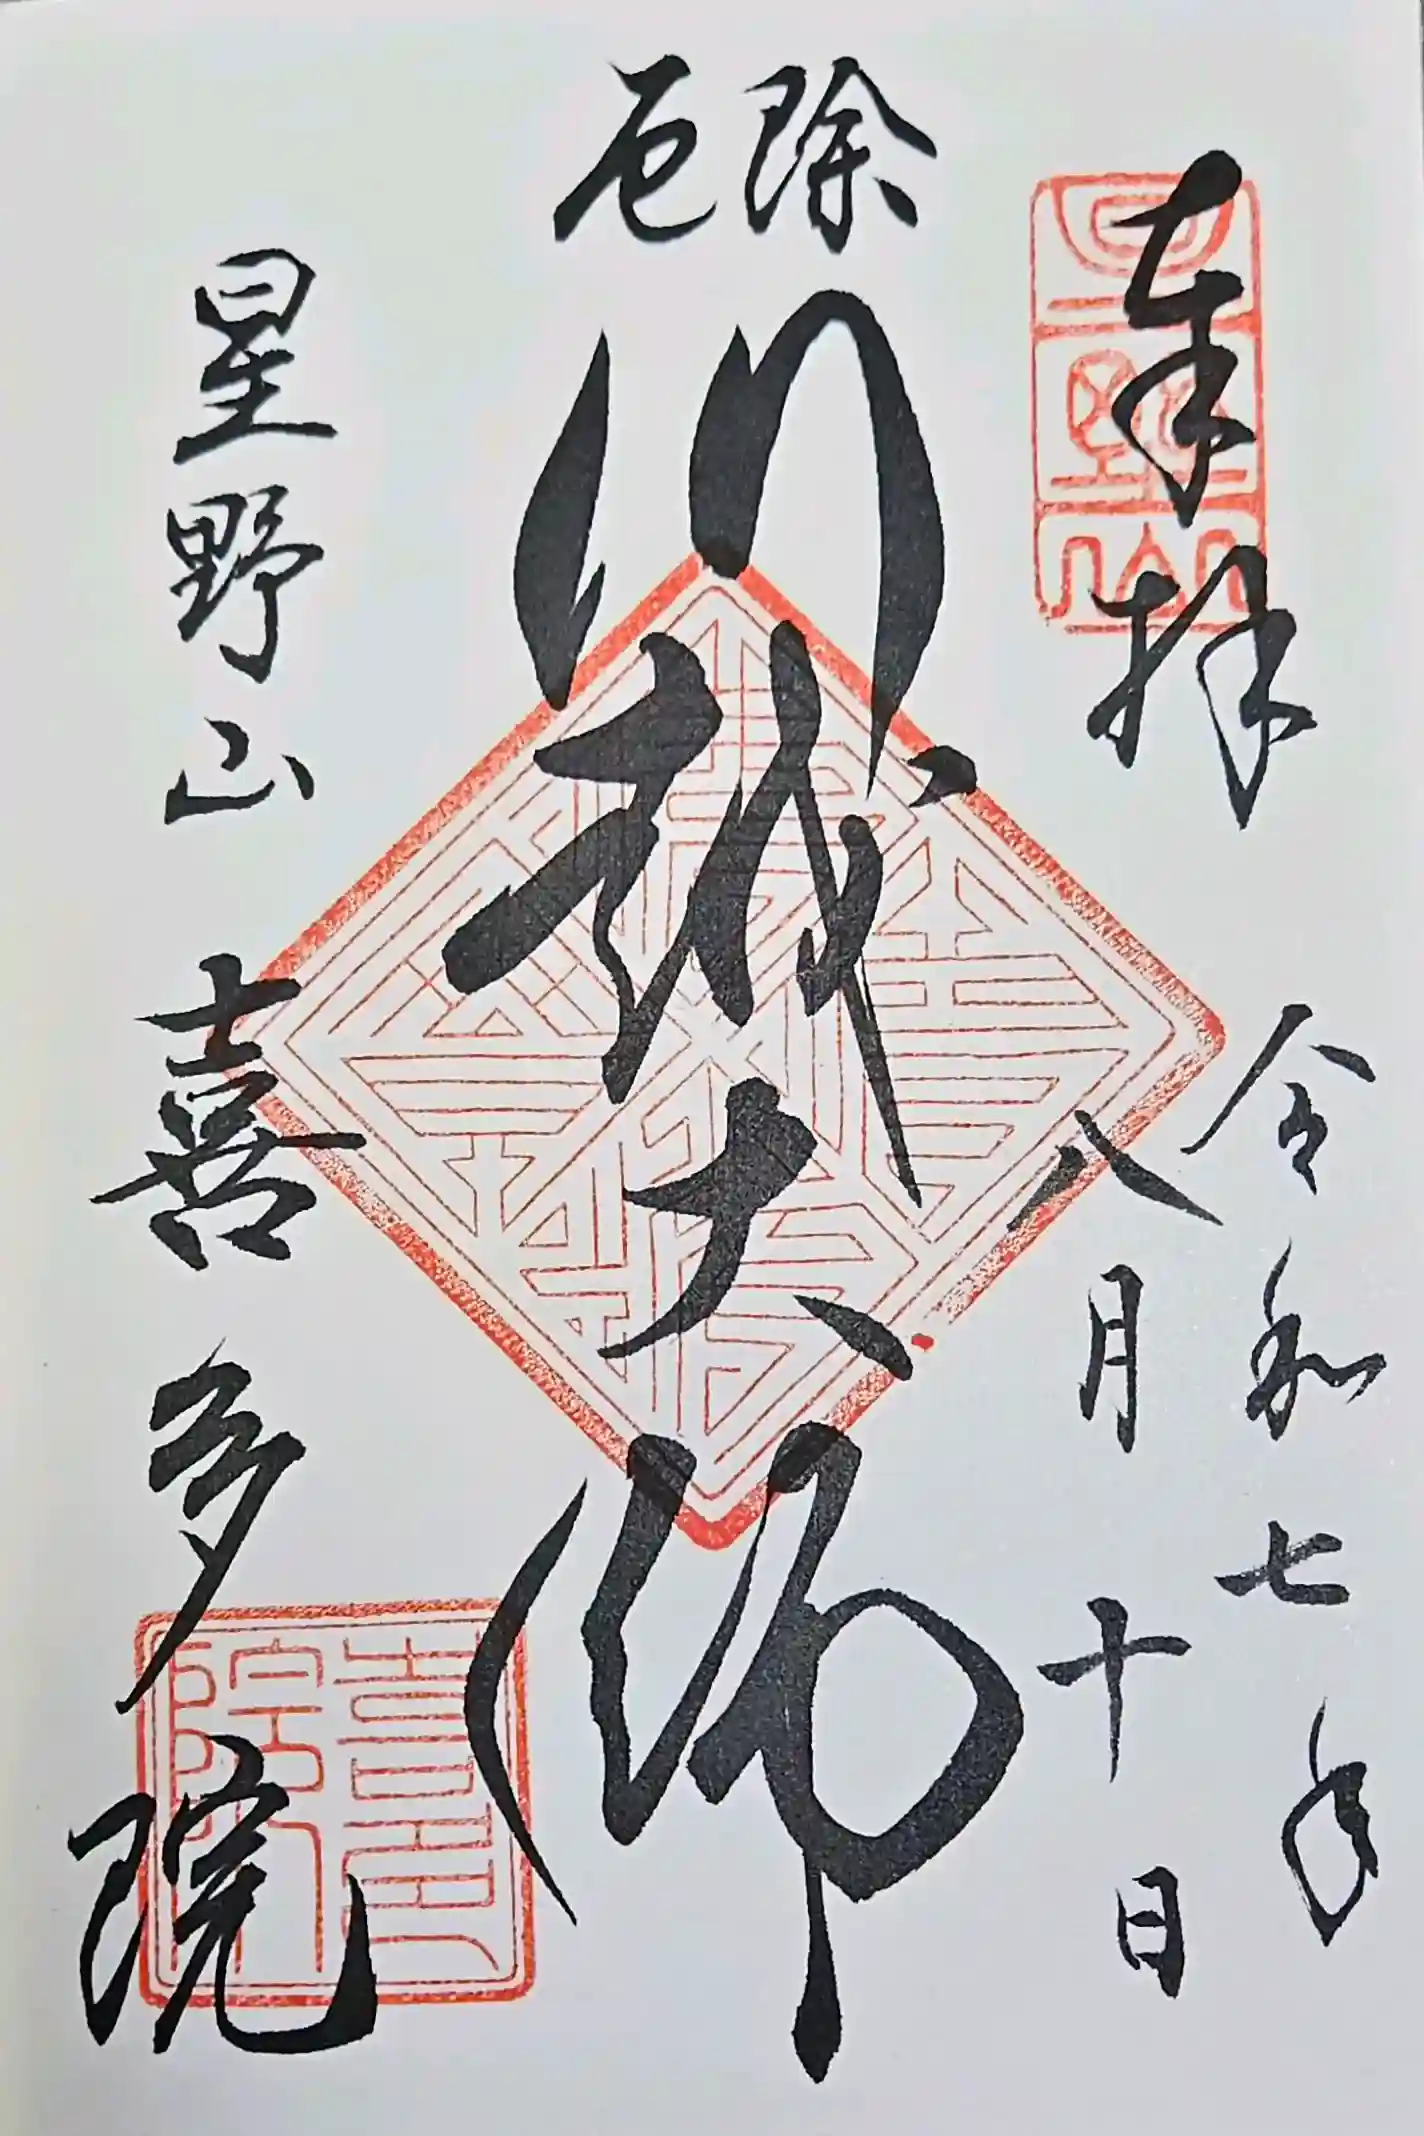 奉拝
令和七年
八月十日
厄除
川越大師
星野山
喜多院
星野山
喜多院